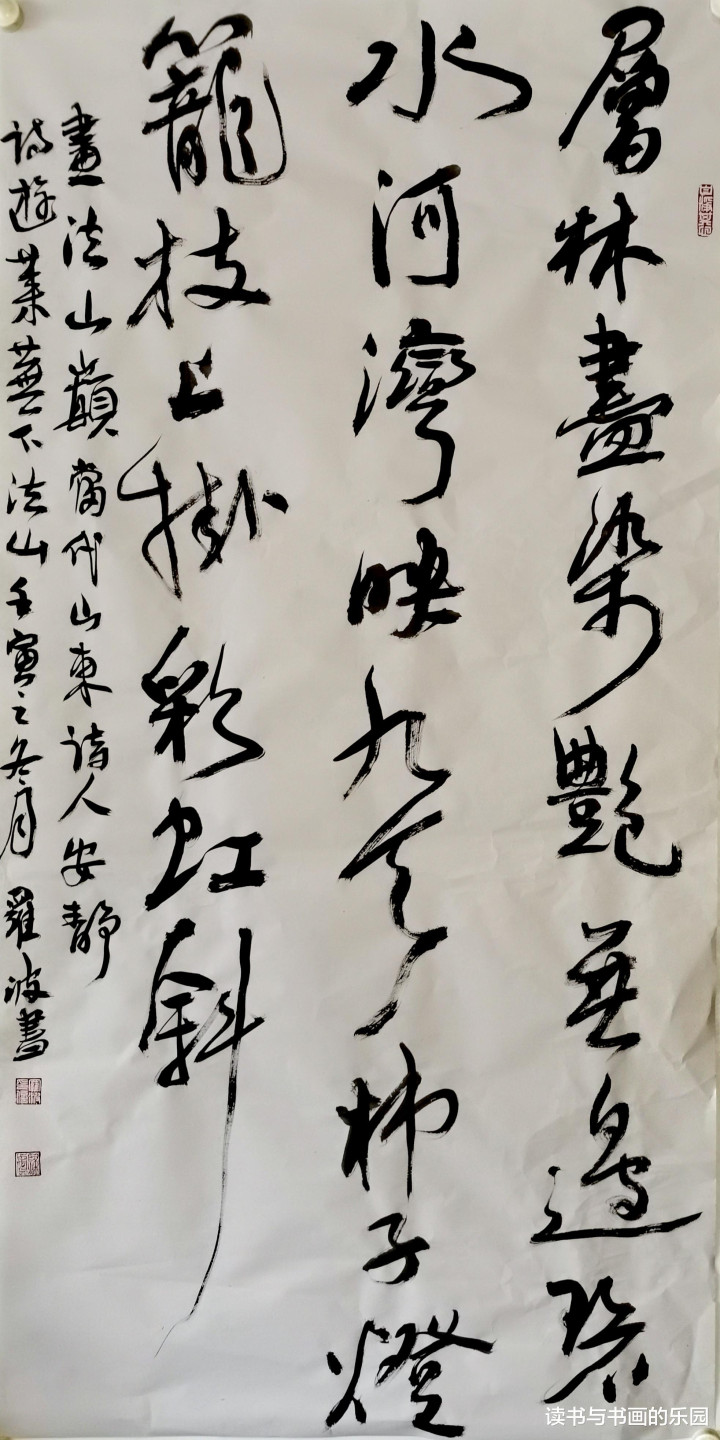 層林盡染艷無邊碧
水河灣映九天柿子燈
籠枝上掛彩虹斜
畫法山巔當代山東詩人安靜
詩遊萊蕪下法山壬寅之冬月羅波書
读书与书画的乐园